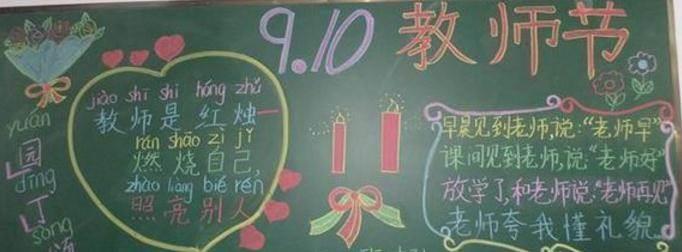 9.10 教师节
jiāo shī shì hóng zhú
教师是红烛
rán shāo zì jǐ
燃烧自己,
zhào liàng bié rén
照亮别人
yuán
园
dīng
丁
sòng
颂
早晨见到老师,说:“老师早”
课间见到老师,说“老师好”
放学了,和老师说:“老师再见”
老师夸我懂礼貌